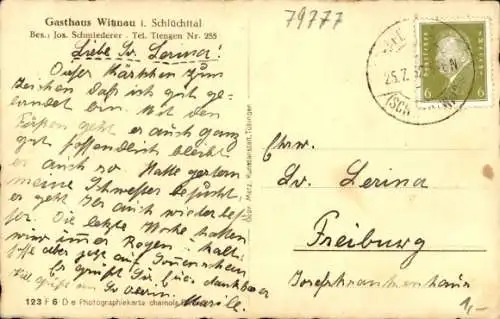 Gasthaus Witznau i. Schlüchttal
Bes.: Jos. Schmiederer . Tel. Tiengen Nr. 255
79777
Liebe Sr. Lerina!
Dieses Kärtchen zum
Zeichen daß ich gut ge-
landet bin. Mit den
Füßen geht es auch ganz
gut hoffentlich bleibt
es auch so. Hatte gestern
meine Schwester besucht,
es geht ihr auch wieder bes-
ser. Die letzte Woche hatten
wir immer Regen
hoffe aber jetzt auf Sonnenschein
Es grüßt Sie, dankbar
Viel Grüße an Sr Oberin.
123 F 6 D e Photographiekarte chamois
Metz, Kunstanstalt, Tübingen
6
25.7.
Ehrw.
Sr. Lerina
Freiburg
Josefskrankenhaus
1,-